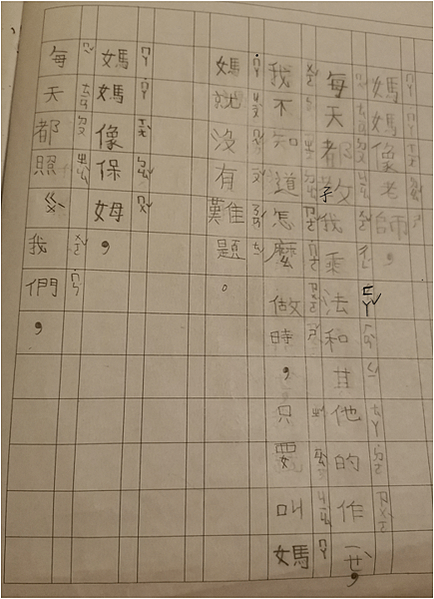 媽媽像老師，
每天都教我乘法和其他的作ㄧㄝˋ，
我不知道怎麼做時，只要叫媽
媽就沒有難題。
媽媽像保姆，
每天都照ㄍㄨˋ我們，